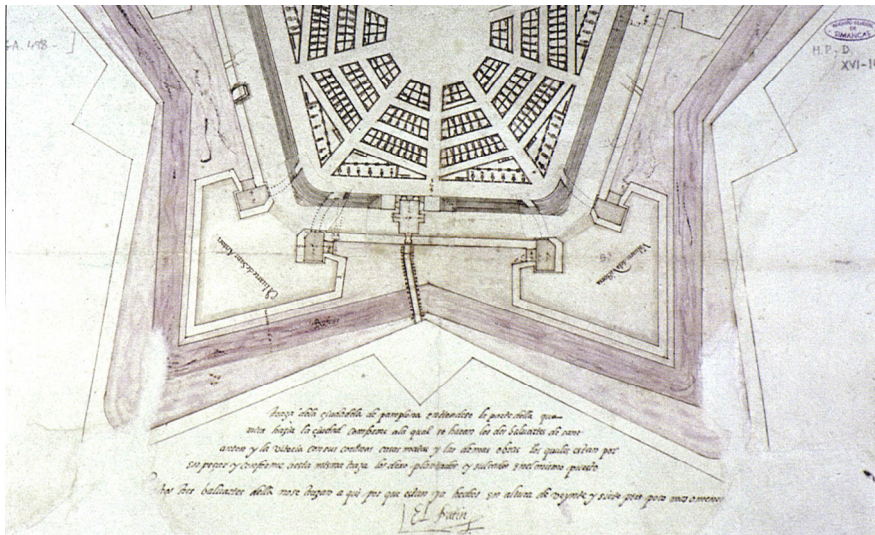 GA. 458-
ARCHIVO GENERAL
DE
SIMANCAS
M.P. y D.
XVI-1
Baluarte de Sant Anton
Baluarte de la Vitoria
traça della ciudadela de pamplona entiendese la parte della que
mira haçia la ciudad conforme a la qual se hazen los dos baluartes de sant
anton y la vitoria con sus cortinas casas matas y las demas obras los quales estan por
en el mismo puesto
los tres baluartes della no se traçan a qui por que estan ya hechos en altura de veynte y siete pies poco mas o menos
El fratin